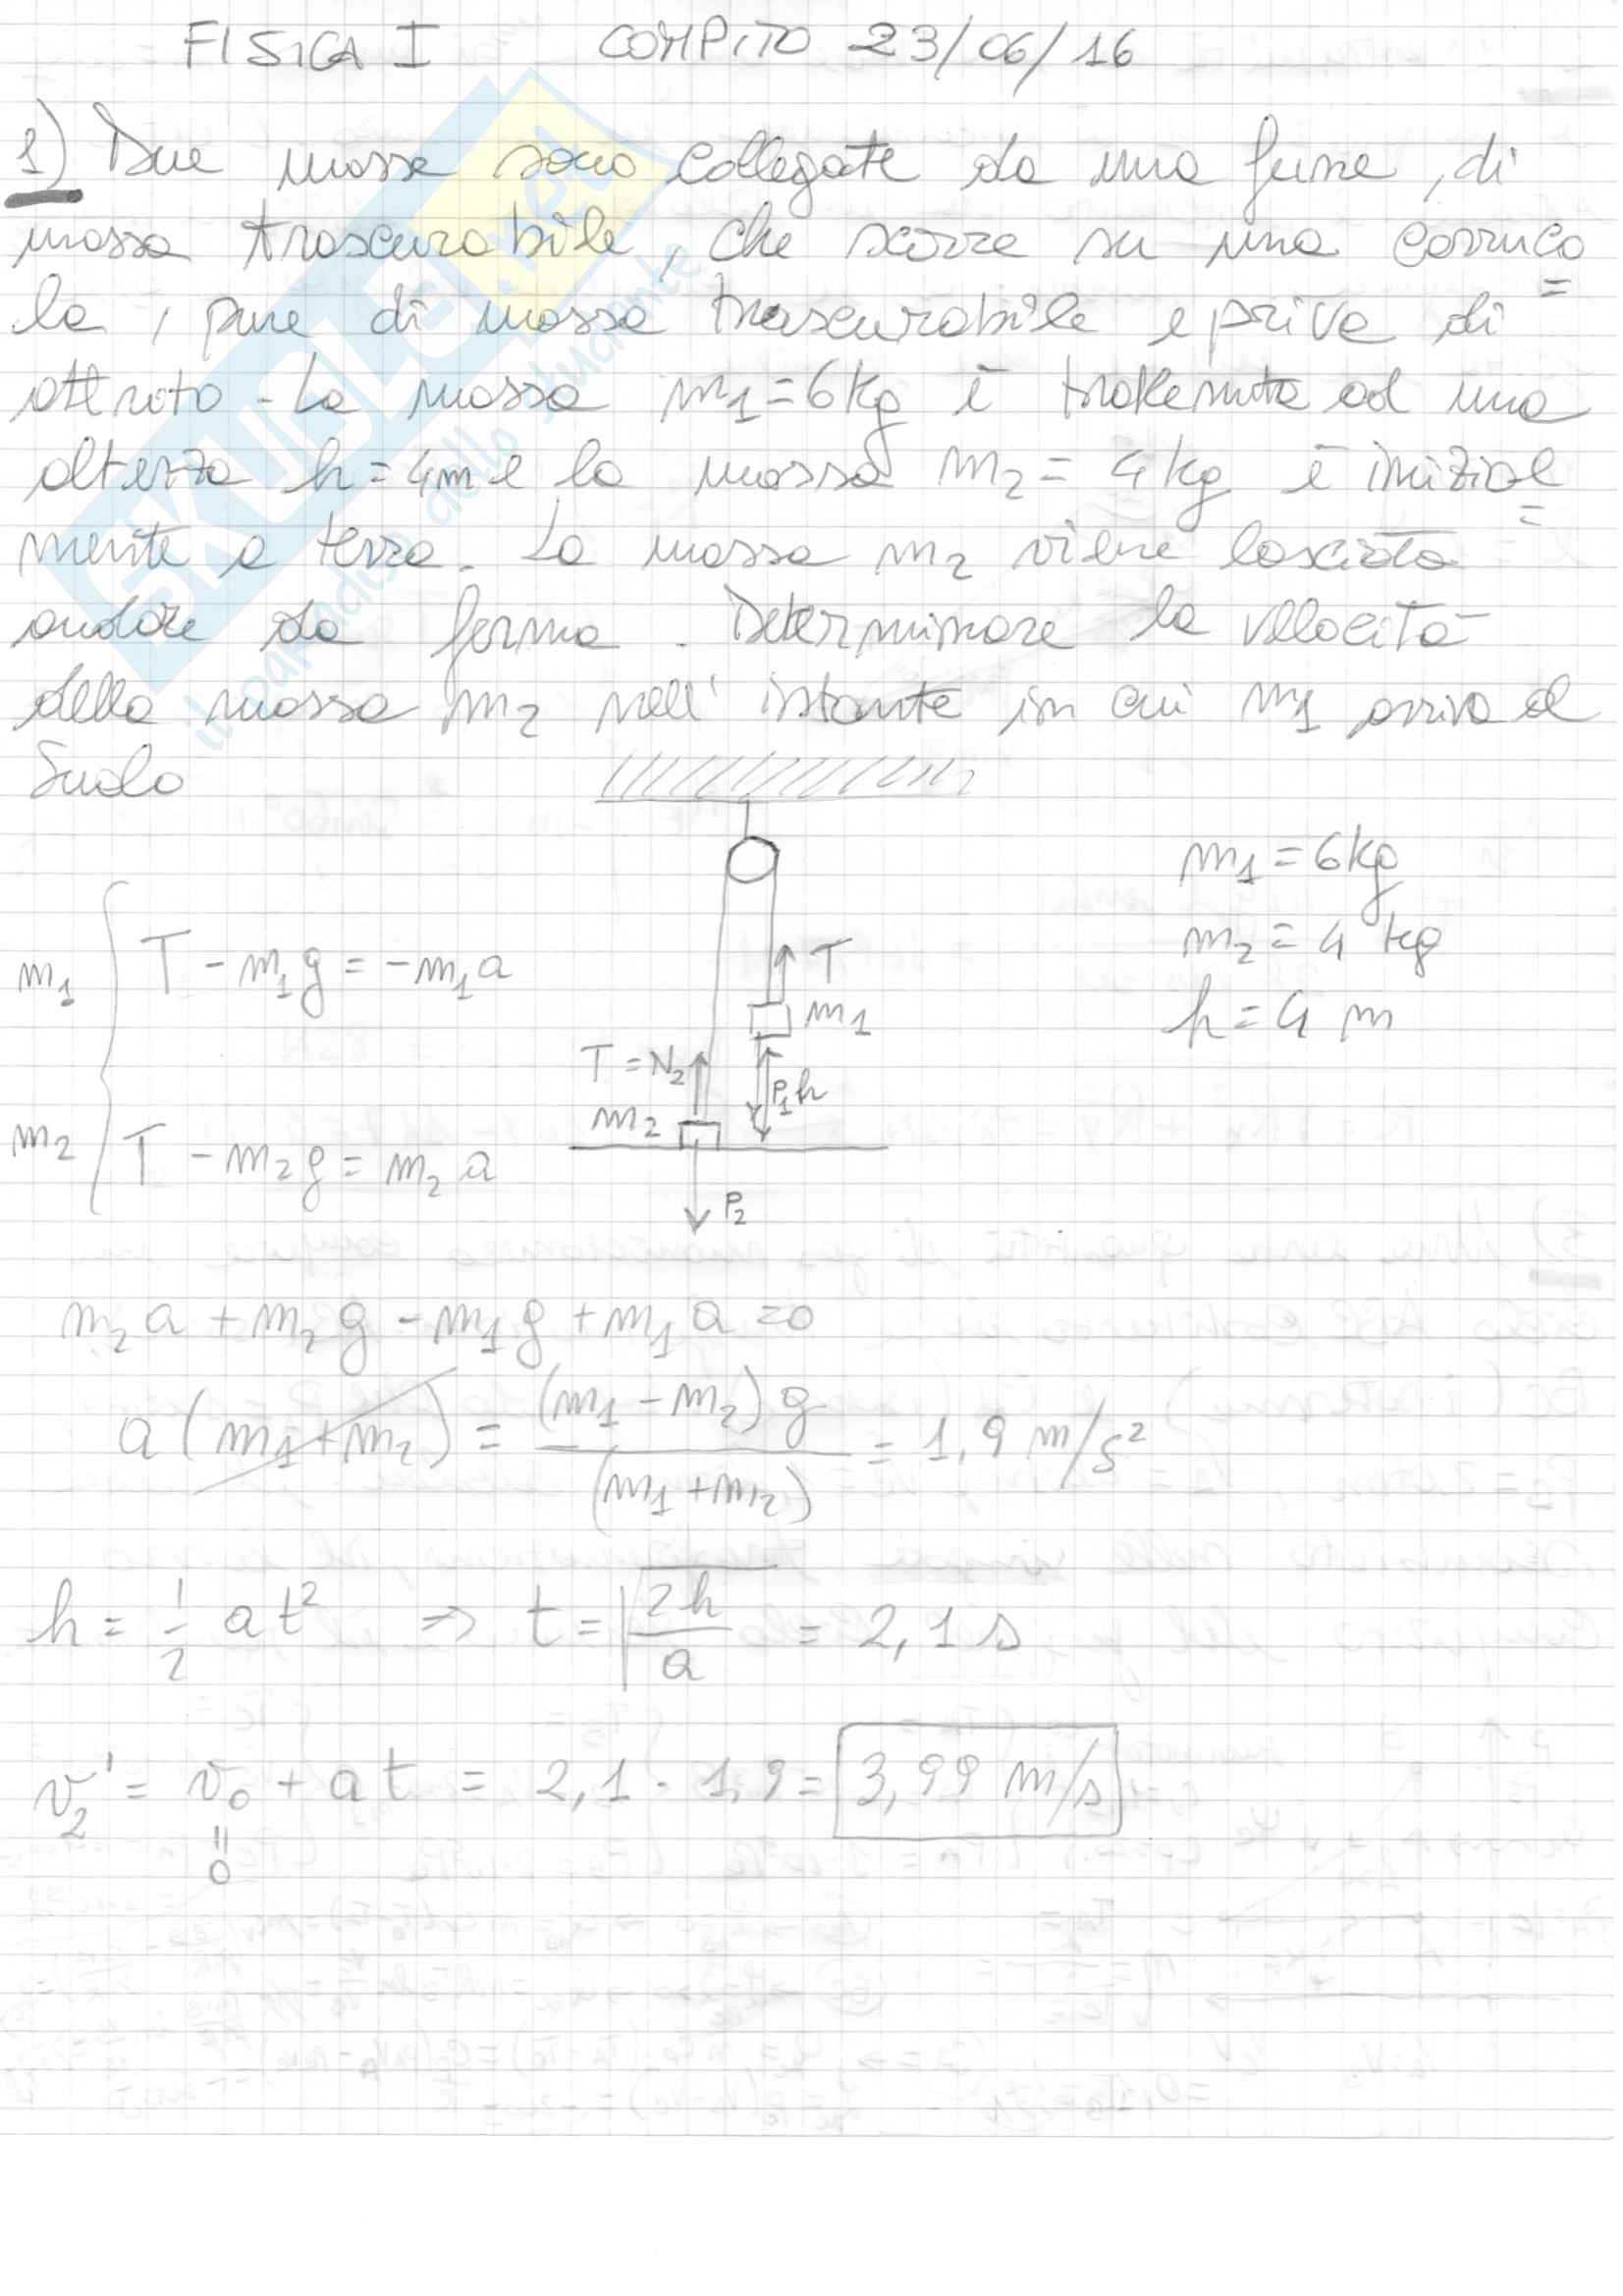 FISICA I COMPITO 23/06/16
1) Due masse sono collegate da una fune, di
massa trascurabile, che scorre su una carruco
la, pure di massa trascurabile e priva di =
attrito - La massa m1 = 6 kg è trattenuta ad una
altezza h = 4m e la massa m2 = 4 kg è inizial
mente a terra. La massa m2 viene lasciata =
andare da ferma. Determinare la velocità
della massa m2 nell'istante in cui m1 arriva al
Suolo
m1 = 6 kg
m2 = 4 kg
h = 4 m
m1 { T - m1g = -m1a
m2 { T - m2g = m2a
T
m1
T = N2
P1 h
m2
P2
m2 a + m2 g - m1 g + m1 a = 0
a (m1 + m2) = (m1 - m2) g / (m1 + m2) = 1,9 m/s²
h = 1/2 a t² => t = √(2h/a) = 2,1 s
v2' = v0 + a t = 2,1 · 1,9 = 3,99 m/s
= 0
SKUOLA.net
il paradiso dello studente